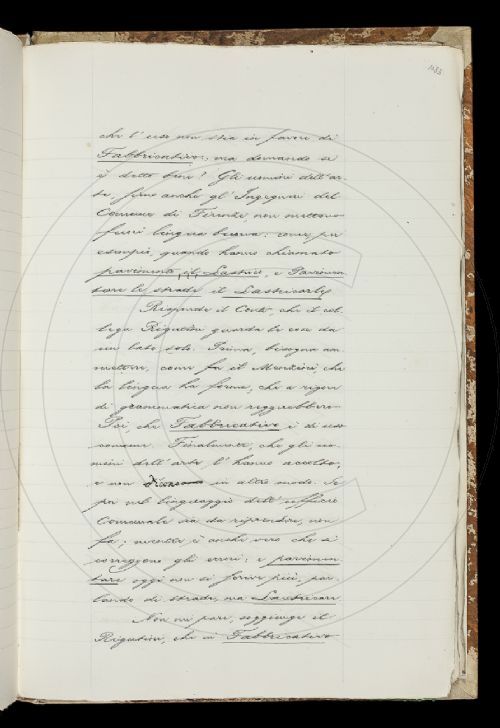 483
che l'uso non stia in favore di
Fabbricativo; ma domando se
è detto bene? Gli uomini dell'ar-
te, forse anche gl'Ingegneri del
Comune di Firenze, non mettono
fuori lingua buona: come per
esempio, quando hanno chiamato
pavimento, il Lastrico, e Pavimen-
tare le strade il Lastricarle.
Risponde il Conti, che il col-
lega Rigutini guarda la cosa da
un lato solo. Prima, bisogna am-
mettere, come fa il che
la lingua ha forme, che a rigore
di grammatica non reggerebbero.
Poi, che Fabbricativo è di uso
comune. Finalmente, che gli uo-
mini dell'arte l'hanno accolto,
e non in altro modo. Se
poi nel linguaggio dell'uffizio
Comunale sia da riprendere, non
fa; mentre è anche vero che si
correggono gli errori: e pavimen-
tare oggi non si scrive più, par-
lando di strade, ma Lastricare.
Non mi pare, soggiunge il
Rigutini, che in Fabbricativo